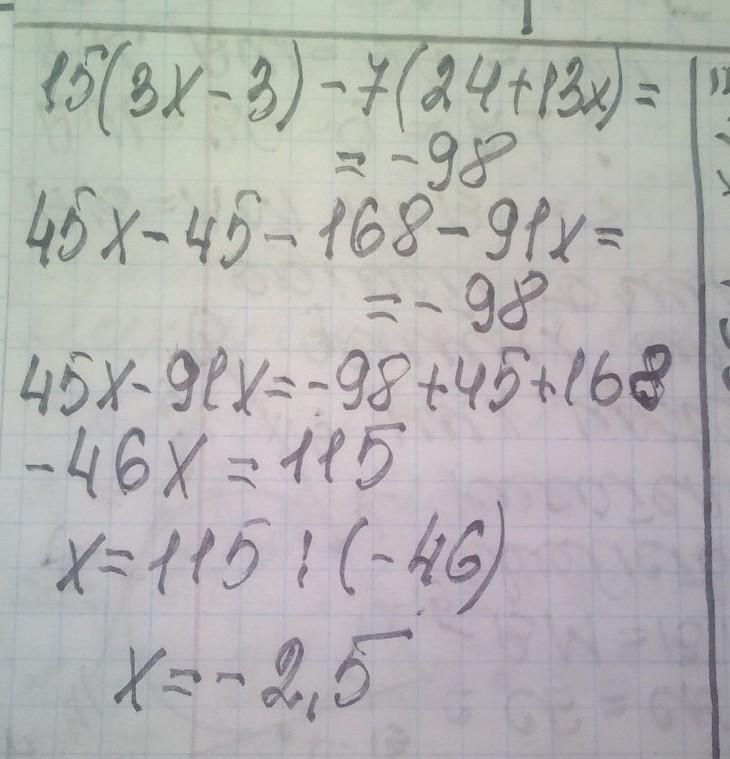 15(3x-3)-7(24+13x)=
=-98
45x-45-168-91x=
=-98
45x-91x=-98+45+168
-46x=115
x=115:(-46)
x=-2,5